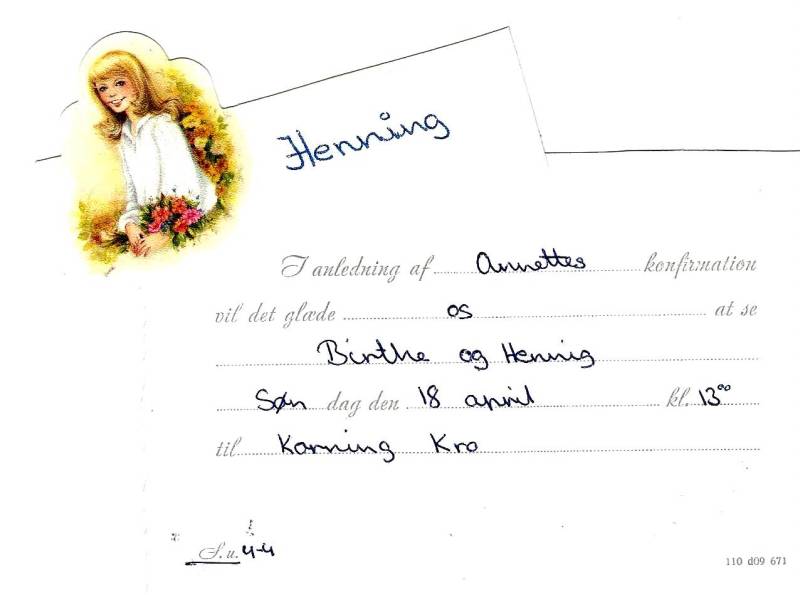 Henning
I anledning af Annettes konfirmation
vil det glæde os at se
Birthe og Hennig
Søndag den 18 april kl. 13⁰⁰
til Korning Kro
S.u. 4-4
110 d09 671